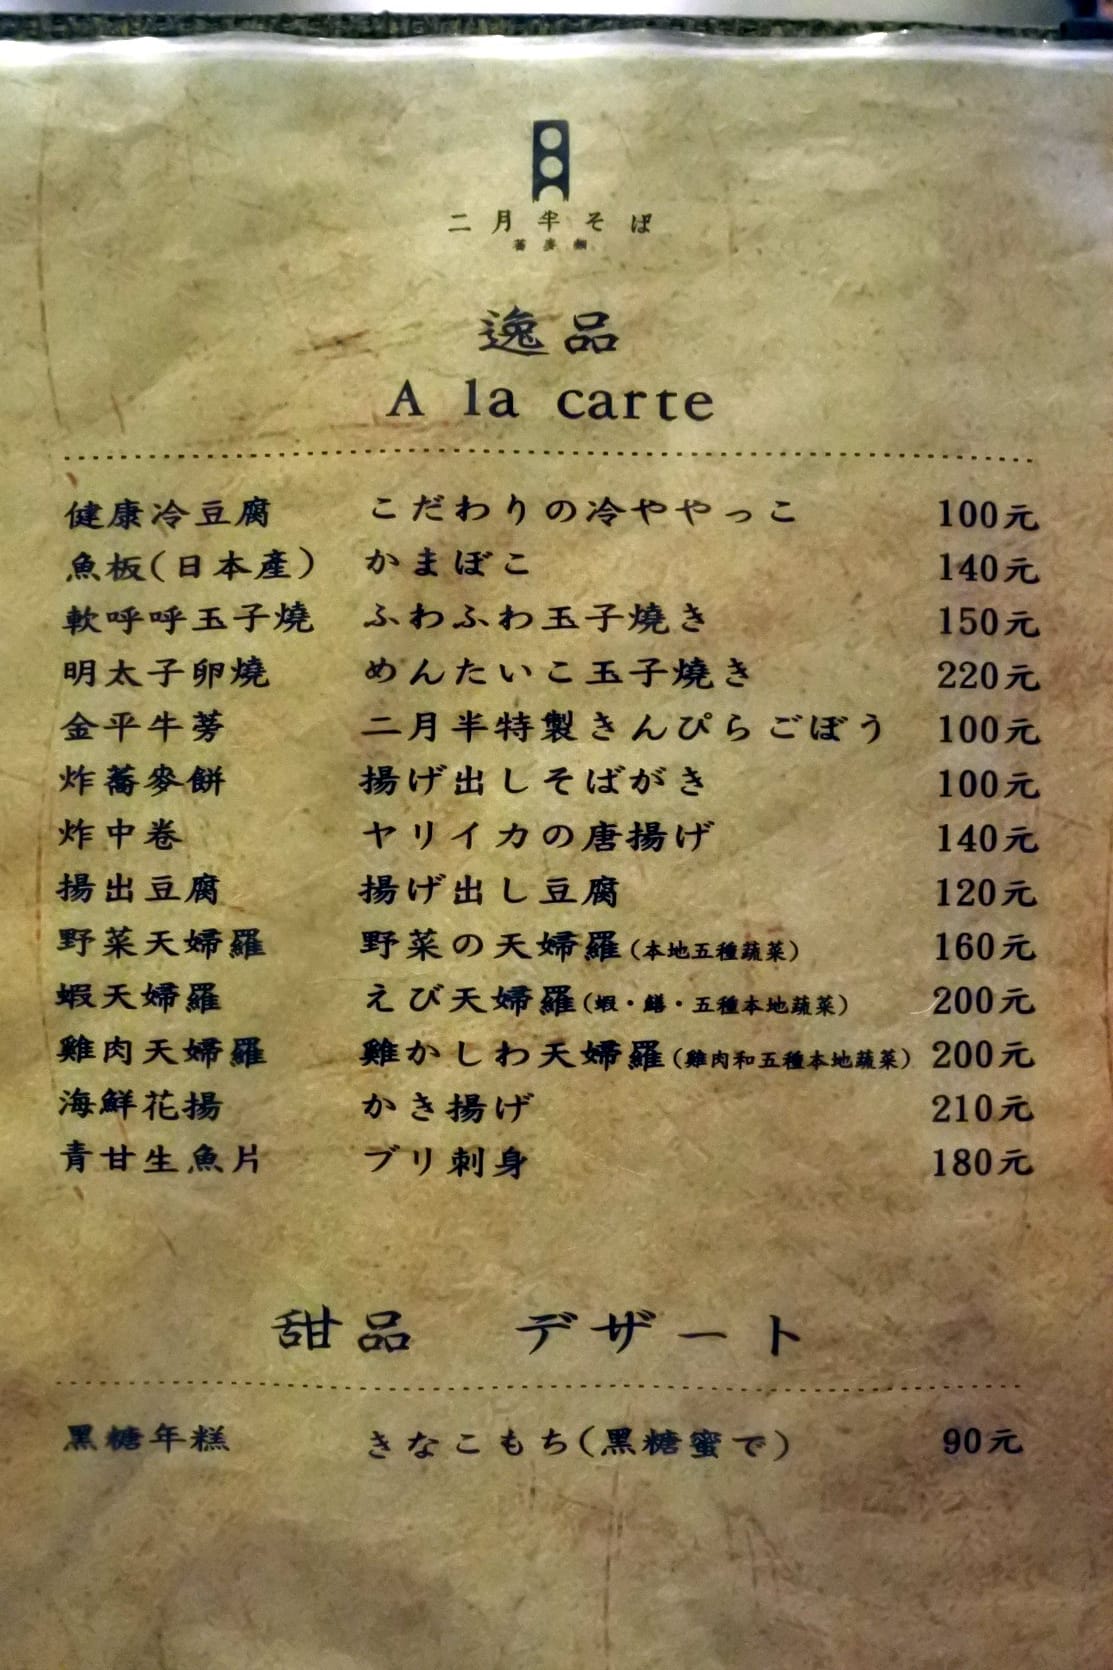 二月半そば
蕎麥麵
逸品
A la carte
健康冷豆腐 こだわりの冷ややっこ 100元
魚板(日本產) かまぼこ 140元
軟呼呼玉子燒 ふわふわ玉子燒き 150元
明太子卵燒 めんたいこ玉子燒き 220元
金平牛蒡 二月半特製きんぴらごぼう 100元
炸蕎麥餅 揚げ出しそばがき 100元
炸中卷 ヤリイカの唐揚げ 140元
揚出豆腐 揚げ出し豆腐 120元
野菜天婦羅 野菜の天婦羅(本地五種蔬菜) 160元
蝦天婦羅 えび天婦羅(蝦・鱔・五種本地蔬菜) 200元
雞肉天婦羅 雞かしわ天婦羅(雞肉和五種本地蔬菜) 200元
海鮮花揚 かき揚げ 210元
青甘生魚片 ブリ刺身 180元
甜品 デザート
黑糖年糕 きなこもち(黑糖蜜で) 90元